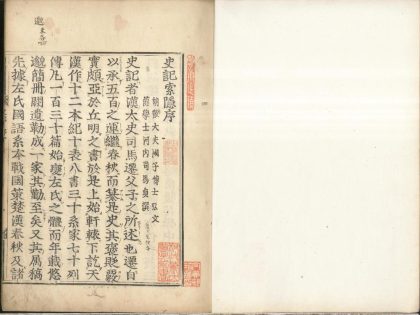 史記索隱序
朝散大夫國子博士弘文
館學士河內司馬貞撰
史記者漢太史司馬遷父子之所述也遷自
以承五百之運繼春秋而纂是史其褒貶覈
實頗亞於丘明之書於是上始軒轅下訖天
漢作十二本紀十表八書三十系家七十列
傳凡一百三十篇始變左氏之體而年載悠
邈簡冊闕遺勒成一家其勤至矣又其屬稿
先據左氏國語系本戰國策楚漢春秋及諸